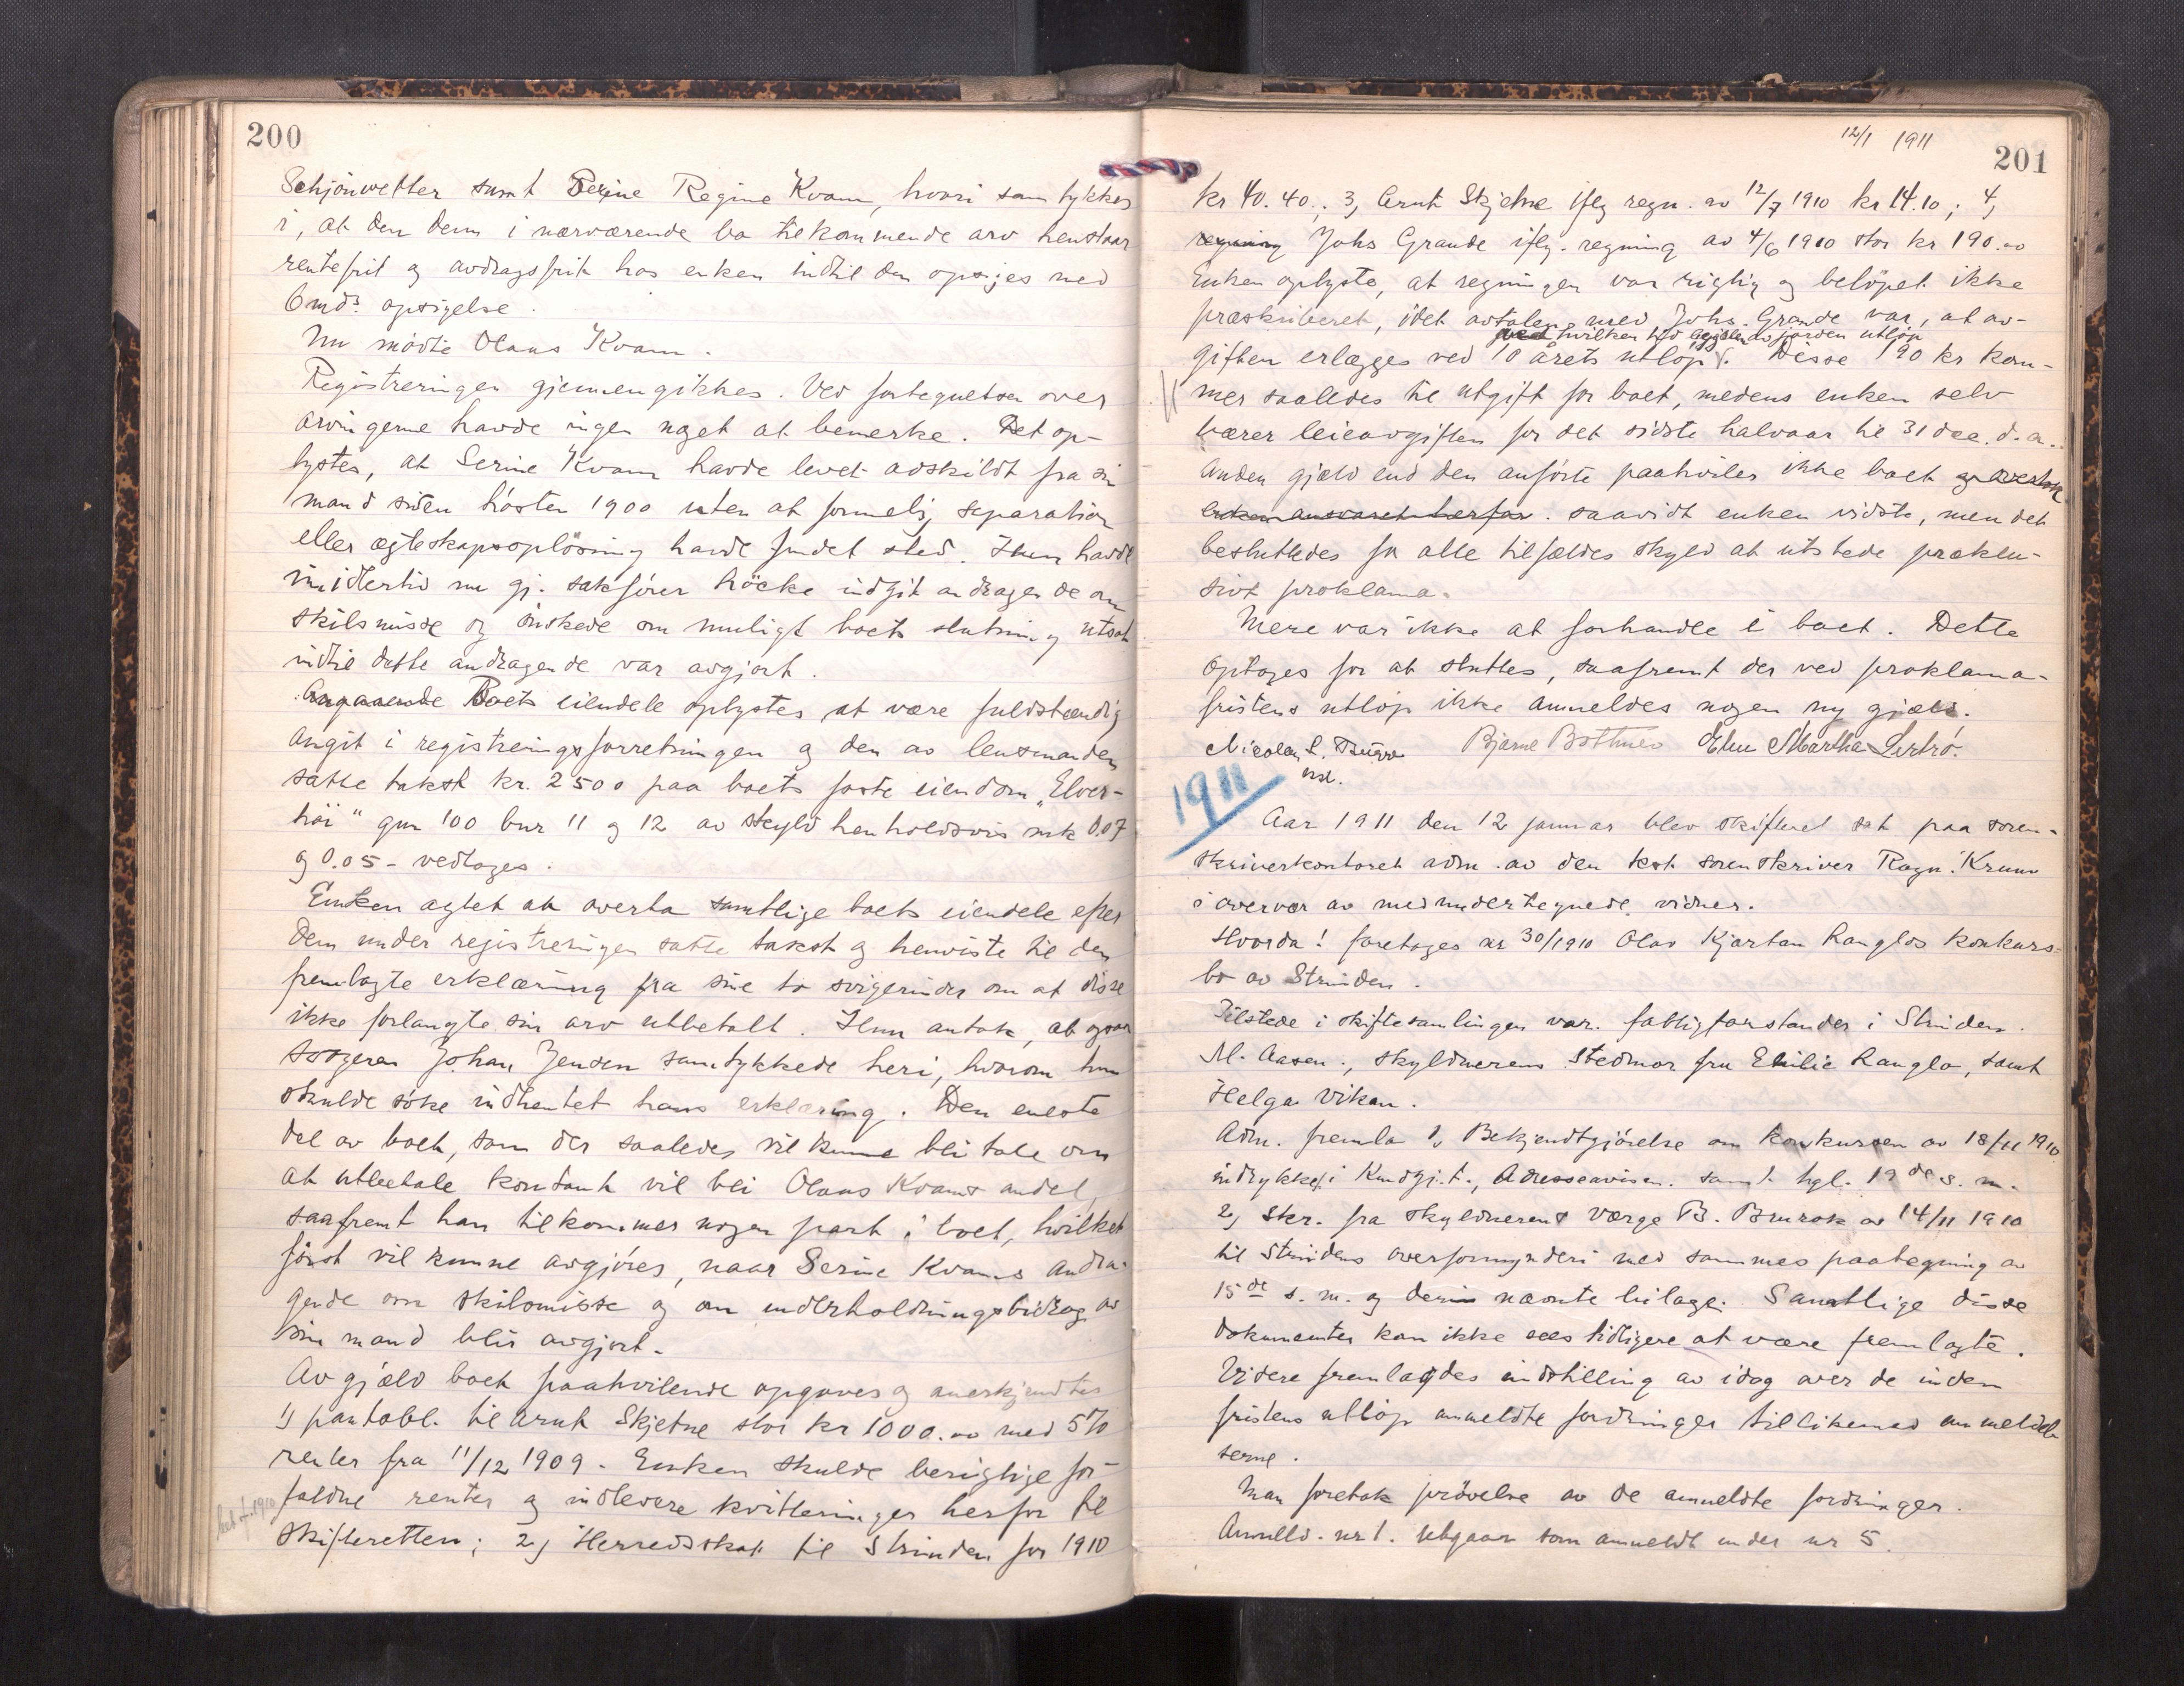 200
Schjönwetter samt Serine Regine Kvam, hvori samtykkes
i, at den dem i nærværende bo tilkommende arv henstaar
rentefrit og avdragsfrit hos enken indtil den opsiges med
6 mdrs opsigelse.
Nu mødte Olaus Kvam.
Registreringen gjennemgikkes. Ved fortegnelsen over
arvingerne havde ingen noget at bemerke. Det op-
lystes, at Serine Kvam havde levet adskildt fra sin
mand siden høsten 1900 uten at formelig separation
eller ægteskapsopløsning havde fundet sted. Hun havde
imidlertid nu gj. sakfører Höcke indgit andragende om
skilsmisse og ønskede om muligt boets slutning utsat
indtil dette andragende var avgjort.
Angaaende Boets eiendele oplystes at være fuldstændig
angit i registreringsforretningen og den av lensmanden
satte takst kr. 2500 paa boets faste eiendom „Elver-
høi" gnr 100 bnr 11 og 12 av skyld henholdsvis mk 0.07
og 0.05 - vedtoges.
Enken agtet at overta samtlige boets eiendele efter
dem under registreringen satte takst og henviste til den
fremlagte erklæring fra sine to svigerinder om at disse
ikke forlangte sin arv utbetalt. Hun antok, at ogsaa
svogeren Johan Jenden samtykkede heri, hvorom hun
skulde søke indhentet hans erklæring. Den eneste
del av boet, som der saaledes vil kunne bli tale om
at utbetale kontant vil bli Olaus Kvams andel,
saafremt han tilkommer nogen part i boet, hvilket
først vil kunne avgjøres, naar Serine Kvams andra-
gende om skilsmisse og om underholdningsbidrag av
sin mand blir avgjort.
Av gjæld boet paahvilende opgaves og anerkjendtes
1) pantobl. til Arnt Skjetne stor kr 1000.00 med 5%
renter fra 11/12 1909. Enken skulde berigtige for-
faldne renter og indlevere kvitteringer herfor til
skifteretten; 2) Herredsskat til Strinden for 1910
12/1 1911
201
kr 40.40; 3, Arnt Skjetne iflg regn. av 12/7 1910 kr 14.10; 4,
regning Johs Grande iflg. regning av 4/6 1910 stor kr 190.00
Enken oplyste, at regningen var rigtig og beløpet ikke
præskriberet, idet avtalen med Johs. Grande var, at av-
ved hvilken tid leien av jorden utløp
giften erlægges ved 10 årets utløp. Disse 190 kr kom-
mer saaledes til utgift for boet, medens enken selv
bærer leieavgiften for det sidste halvaar til 31 dec. d.a.
Anden gjæld end den anførte paahviler ikke boet og overtok
enken ansvaret herfor. saavidt enken vidste, men det
besluttedes for alle tilfældes skyld at utstede præklu-
sivt proklama.
Mere var ikke at forhandle i boet. Dette
optoges for at sluttes, saafremt der ved proklama-
fristens utløp ikke anmeldes nogen ny gjæld.
Nicolay L. Bugge Bjarne Bothner Elen Martha Lertrö.
cst.
1911
Aar 1911 den 12 januar blev skifteret sat paa soren-
skriverkontoret adm. av den kst sorenskriver Ragn. Kruno
i overvær av medundertegnede vidner.
Hvorda! foretoges nr 30/1910 Olav Kjartan Ranglos konkurs-
bo av Strinden.
Tilstede i skiftesamlingen var. fattigforstander i Strinden.
M. Aasen., skyldnerens stedmor fru Emilie Ranglo, samt
Helga Vikan.
Adm. fremla 1, Bekjendtgjørelse om konkursen av 18/11 1910
indrykket i Kundgj.t., Adresseavisen. samt tgl. 19de s. m.
2, Skr. fra skyldnerens værge B. Brurok av 14/11 1910
til Strindens overformynderi med sammes paategning av
15de s. m. og deri nævnte bilage. Samtlige disse
dokumenter kan ikke sees tidligere at være fremlagte.
Videre fremlagdes indstilling av idag over de inden
fristens utløp anmeldte fordringer tillikemed anmeldel-
serne.
Man foretok prøvelse av de anmeldte fordringer.
Anmeld. nr 1. Utgaar som anmeldt under nr 5.